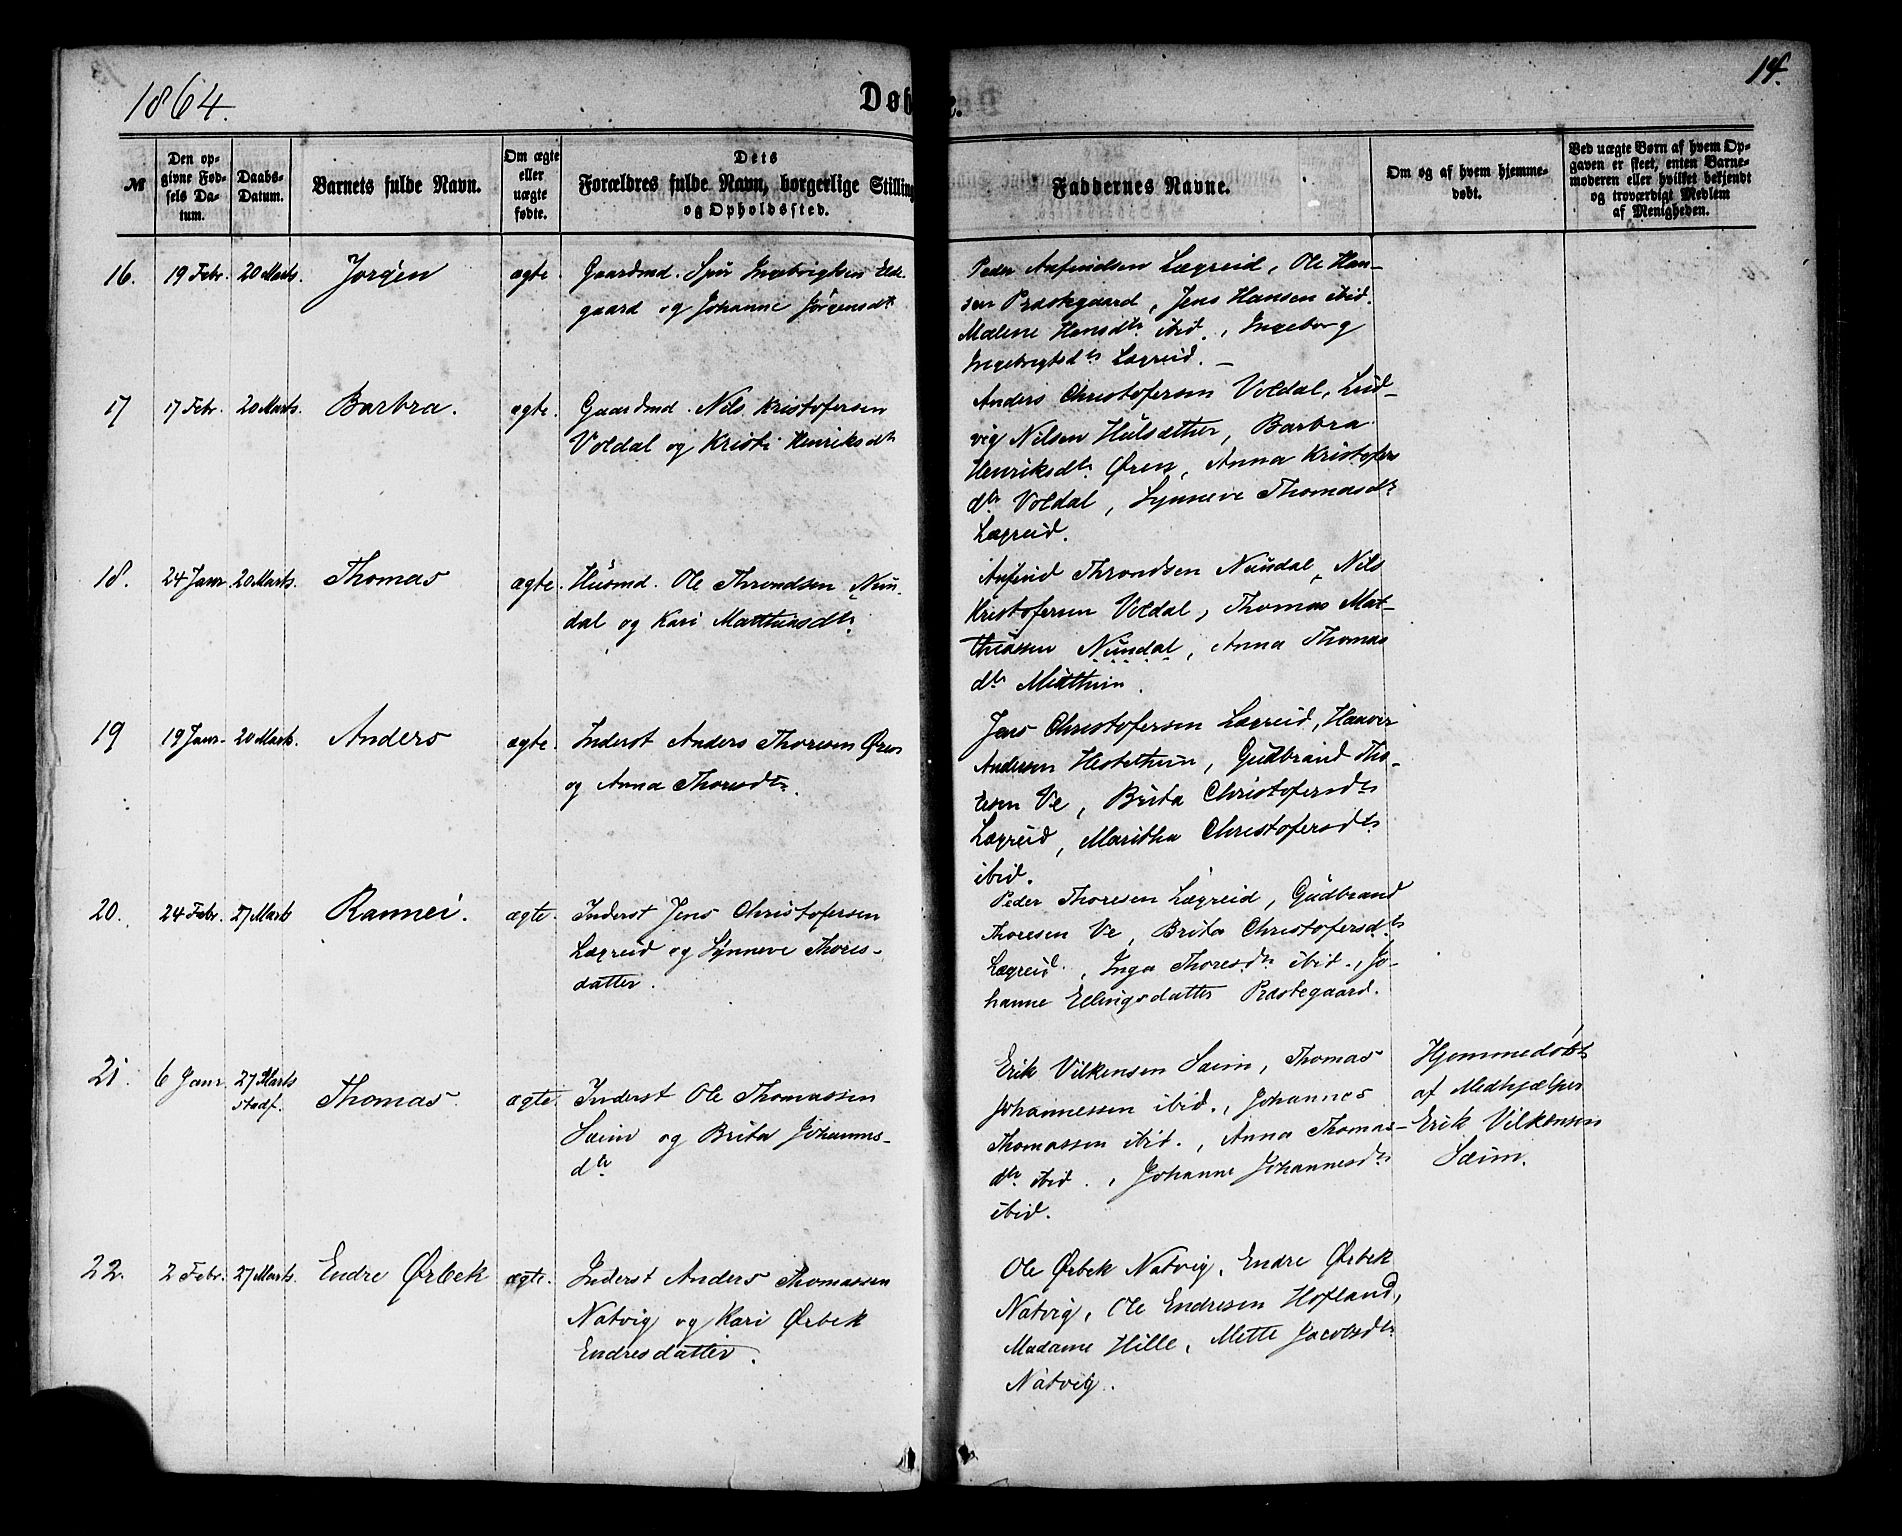 1864.
Døb
e.
14.
№
Den op-
givne Fød-
sels Da-
tum.
Daabs-
Datum.
Barnets fulde Navn.
Om ægte
eller
uægte
fødte.
Dets
Forældres fulde Navn, borgerlige Stilling
og Opholdssted.
Faddernes Navne.
Om og af hvem hjemme-
døbt.
Ved uægte Børn af hvem Op-
gaven er skeet, enten Barne-
moderen eller hvilket bekjendt
og troværdigt Medlem
af Menigheden.
16. 19 Febr. 20 Marts. Jørgen ægte. Gaardmd. Sjur Ingebrigtsen Elde-
gaard og Johanne Jörgensdtr
Peder Anfindsen Lægreid, Ole Han-
sen Præstegaard, Jens Hansen ibid.
Malene Hansdtr ibid., Ingeborg
Ingebrigtsdtr Lægreid. —
17 17 Febr. 20 Marts. Barbra. ægte. Gaardmd. Nils Kristofersen
Voldal og Kristi Henriksdtr
Anders Christofersen Voldal, Lud-
vig Nilsen Hulsæther, Barbra
Henriksdtr Øren, Anna Kristofers
dtr Voldal, Synneve Thomasdtr
Lægreid.
18. 24 Janr 20 Marts. Thomas ægte. Husmd. Ole Throndsen Nun-
dal og Kari Matthiasdtr
Anfind Throndsen Nundal, Nils
Kristofersen Voldal, Thomas Mat-
thiassen Nundal, Anna Thomas
dtr Midthun.
19 19 Janr. 20 Marts. Anders ægte. Inderst Anders Thoresen Øren
og Anna Thoresdtr.
Jens Christofersen Lægreid, Haaver
Andersen Hestethun, Gudbrand Tho-
resen Ve, Brita Christofersdtr
Lægreid, Maritha Christofersdtr
ibid.
20. 24 Febr. 27 Marts Rannei. ægte. Inderst Jens Christofersen
Lægreid og Synneve Thores-
datter.
Peder Thoresen Lægreid, Gudbrand
Thoresen Ve, Brita Christofersdtr
Lægreid, Inga Thoresdtr ibid., Jo-
hanne Ellingsdatter Præstegaard.
21. 6 Janr. 27 Marts
stadf. Thomas ægte. Inderst Ole Thomassen
Sæim og Brita Johannes-
dtr
Erik Vilkensen Sæim, Thomas
Johannessen ibid., Johannes
Thomassen ibid., Anna Thomas-
dtr ibid., Johanne Johannesdtr
ibid.
Hjemmedøbt
af Medhjælper
Erik Vilkensen
Sæim.
22. 2 Febr. 27 Marts. Endre Ørbek ægte. Inderst Anders Thomassen
Natvig og Kari Ørbek
Endresdatter.
Ole Ørbek Natvig, Endre Ørbek
Natvig, Ole Endresen Hofland,
Madame Hille, Mette Jacobsdtr
Natvig.